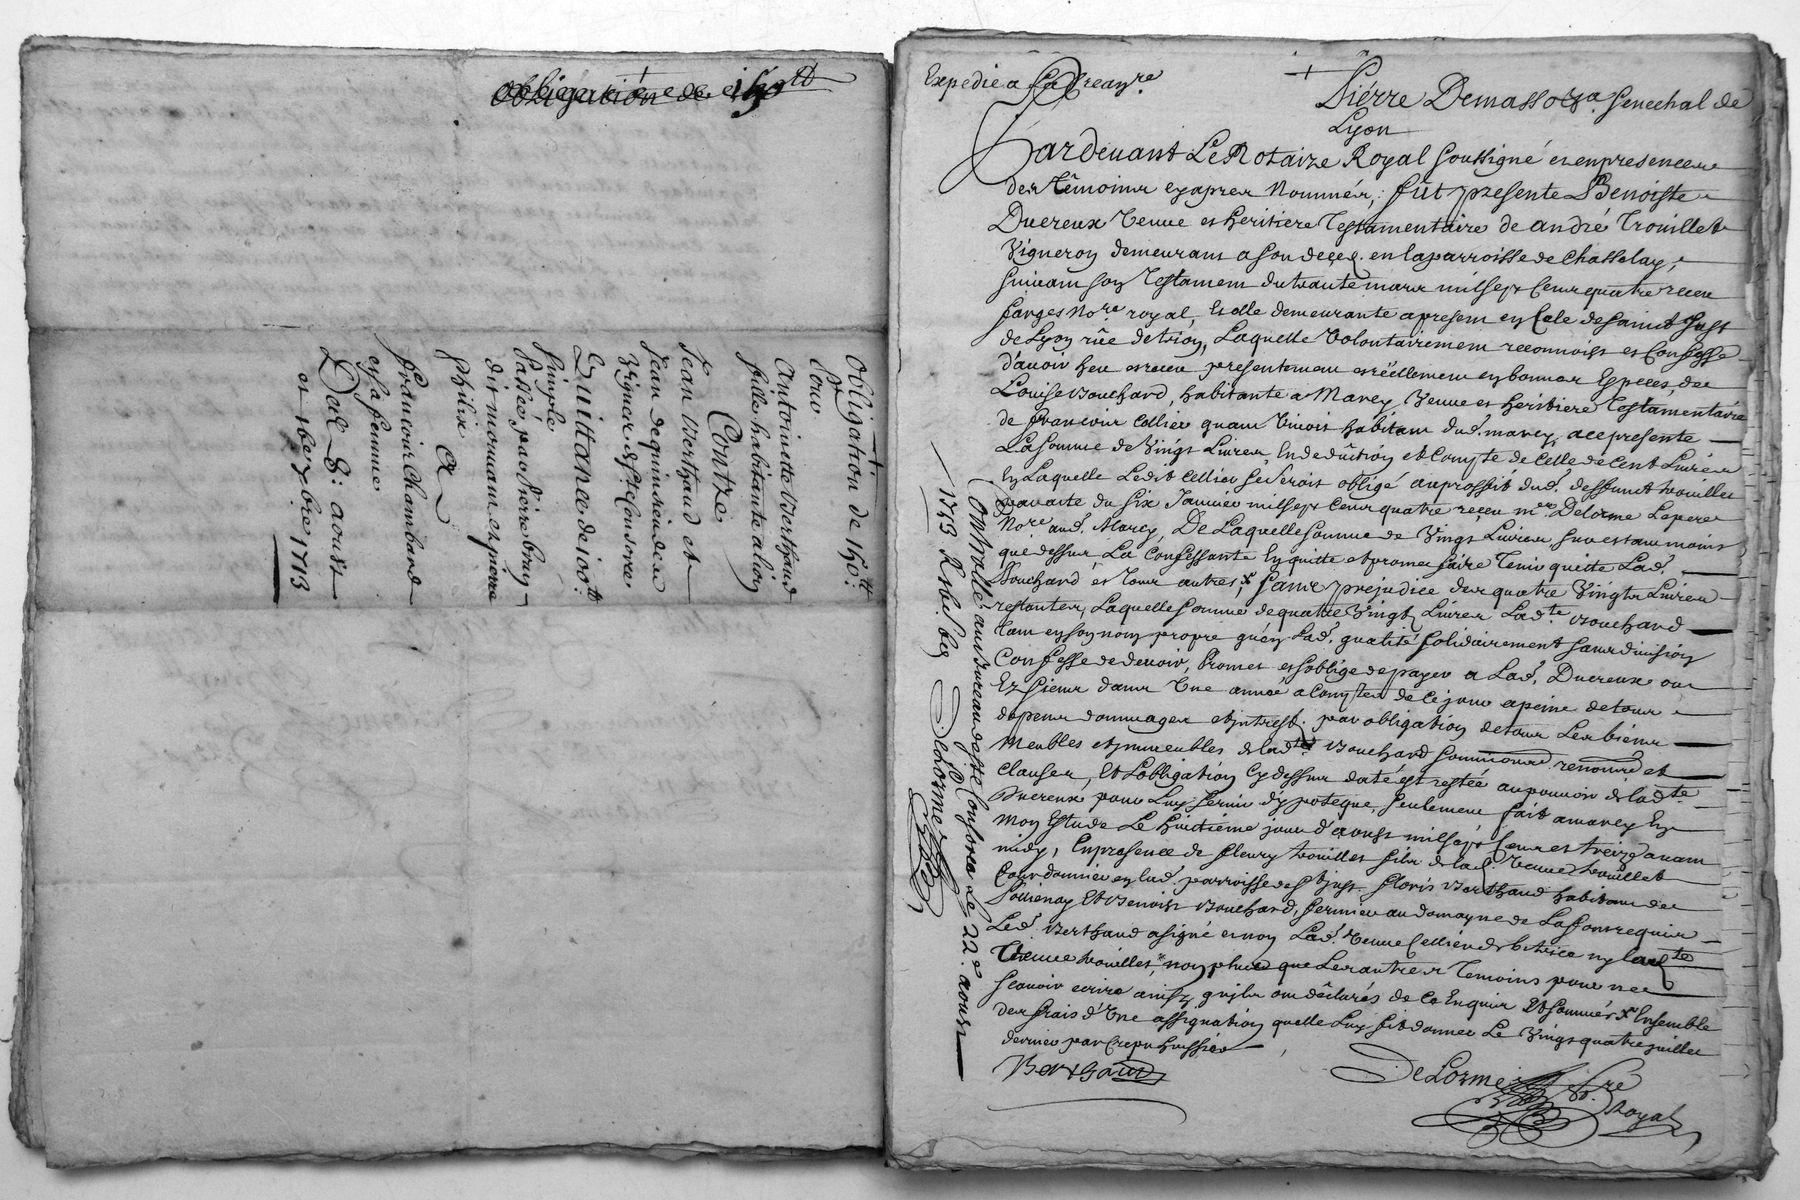 obligation de 150ᵗᵗ
Obligation de 150ᵗᵗ
Pour
Antoinette Berthaud
fille habitante a lion
Contre
Jean Berthaud et
Jean dequinsieu
Vigner. de Ste Consorce
Quittance de 100ᵗᵗ
simple
Passée par Pierre bruy
dit mouuant et pierre
philix
A
francois Chambard
et sa femme
Du 8: aoust
et 16e 7bre 1713
Expedié a
+
Pierre Demasso Senechal de
Lyon
Pardeuant Le Notaire Royal soussigné et en presence
des Témoins cyapres Nommés, fût presente Benoiste
Ducreux Veuue et heritiere Testamentaire de andré Trouillet
Vigneron demeurant a son deces en la parroisse de Chasselay,
suiuant son Testament du trante mars mil sept Cent quatre receu
farges Nore royal, Et elle demeurante a present en Cele de saint Just
de Lyon rüe de trion, Laquelle Volontairement reconnoist et Confesse
d'auoir heu et receu presentement et réellement en bonnes Especes de
Louise Bouchard, habitante a Marcy Veuue et heritiere Testamentaire
de francois Collier quant Viuoit habitant dud. marcy, acepresente
La somme de Vingt Liures, En deduction et Compte de Celle de Cent Liures
En Laquelle Ledit Cellier se seroit obligé au proffit dud. deffunct trouillet
par acte du six Januier mil sept Cent quatre reçeu mᵉ Delorme Le pere
Nore aud. Marcy, De Laquelle somme de Vingt Liures, suiuant moins
que dessus La Confessante En quitte et promet faire Tenir quitte Lad.
Bouchard et tous autres, x sans prejudice des quatre Vingts Liures
restantes, Laquelle somme de quatre Vingt Liures Lad.te Bouchard
tant en son nom propre qu'en Lad. qualité solidairement sans diuision
Confesse de deuoir, Promet et s'oblige de payer a Lad. Ducreux ou
Es siens dans Vne année a Compter de Ce jour a peine de tous
depens dommages et intrest. par obligation de tous Les biens
Meubles et immeubles de lad.te Bouchard soumissions renoncia et
Clauses, Et L'obligation Cy dessus datée est restée au pouuoir de lad.te
Ducreux pour Luy seruir d'ypoteque seulement fait a marcy En
mon Estude Le huictieme jour d'aoust mil sept Cent et treize auant
midy, En presence de fleury trouillet fils de lad. Veuue trouillet
Cordonnier en lad. parroisse de St just. floris Berthaud habitant de
Pollienay Et Benoist Bouchard, fermier au domayne de La fontrequin
Led. Berthaud a signé et non Lad. Veuue Cellier debitrice ny lad.te
Veuue trouillet, non plus que Les autres Temoins pour ne
scauoir ecrire ainsy qu'ils ont déclarés de Ce Enquis Et sommés x Ensemble
des frais d'Vne assignation quelle Luy fit donner Le Vingt quatre juillet
dernier par Crepu huissier
Berthaud
DeLorme Nore
Royal
Controllé au bureau de Ste Consorce Le 22e aoust
1713 R sols
DeLorme